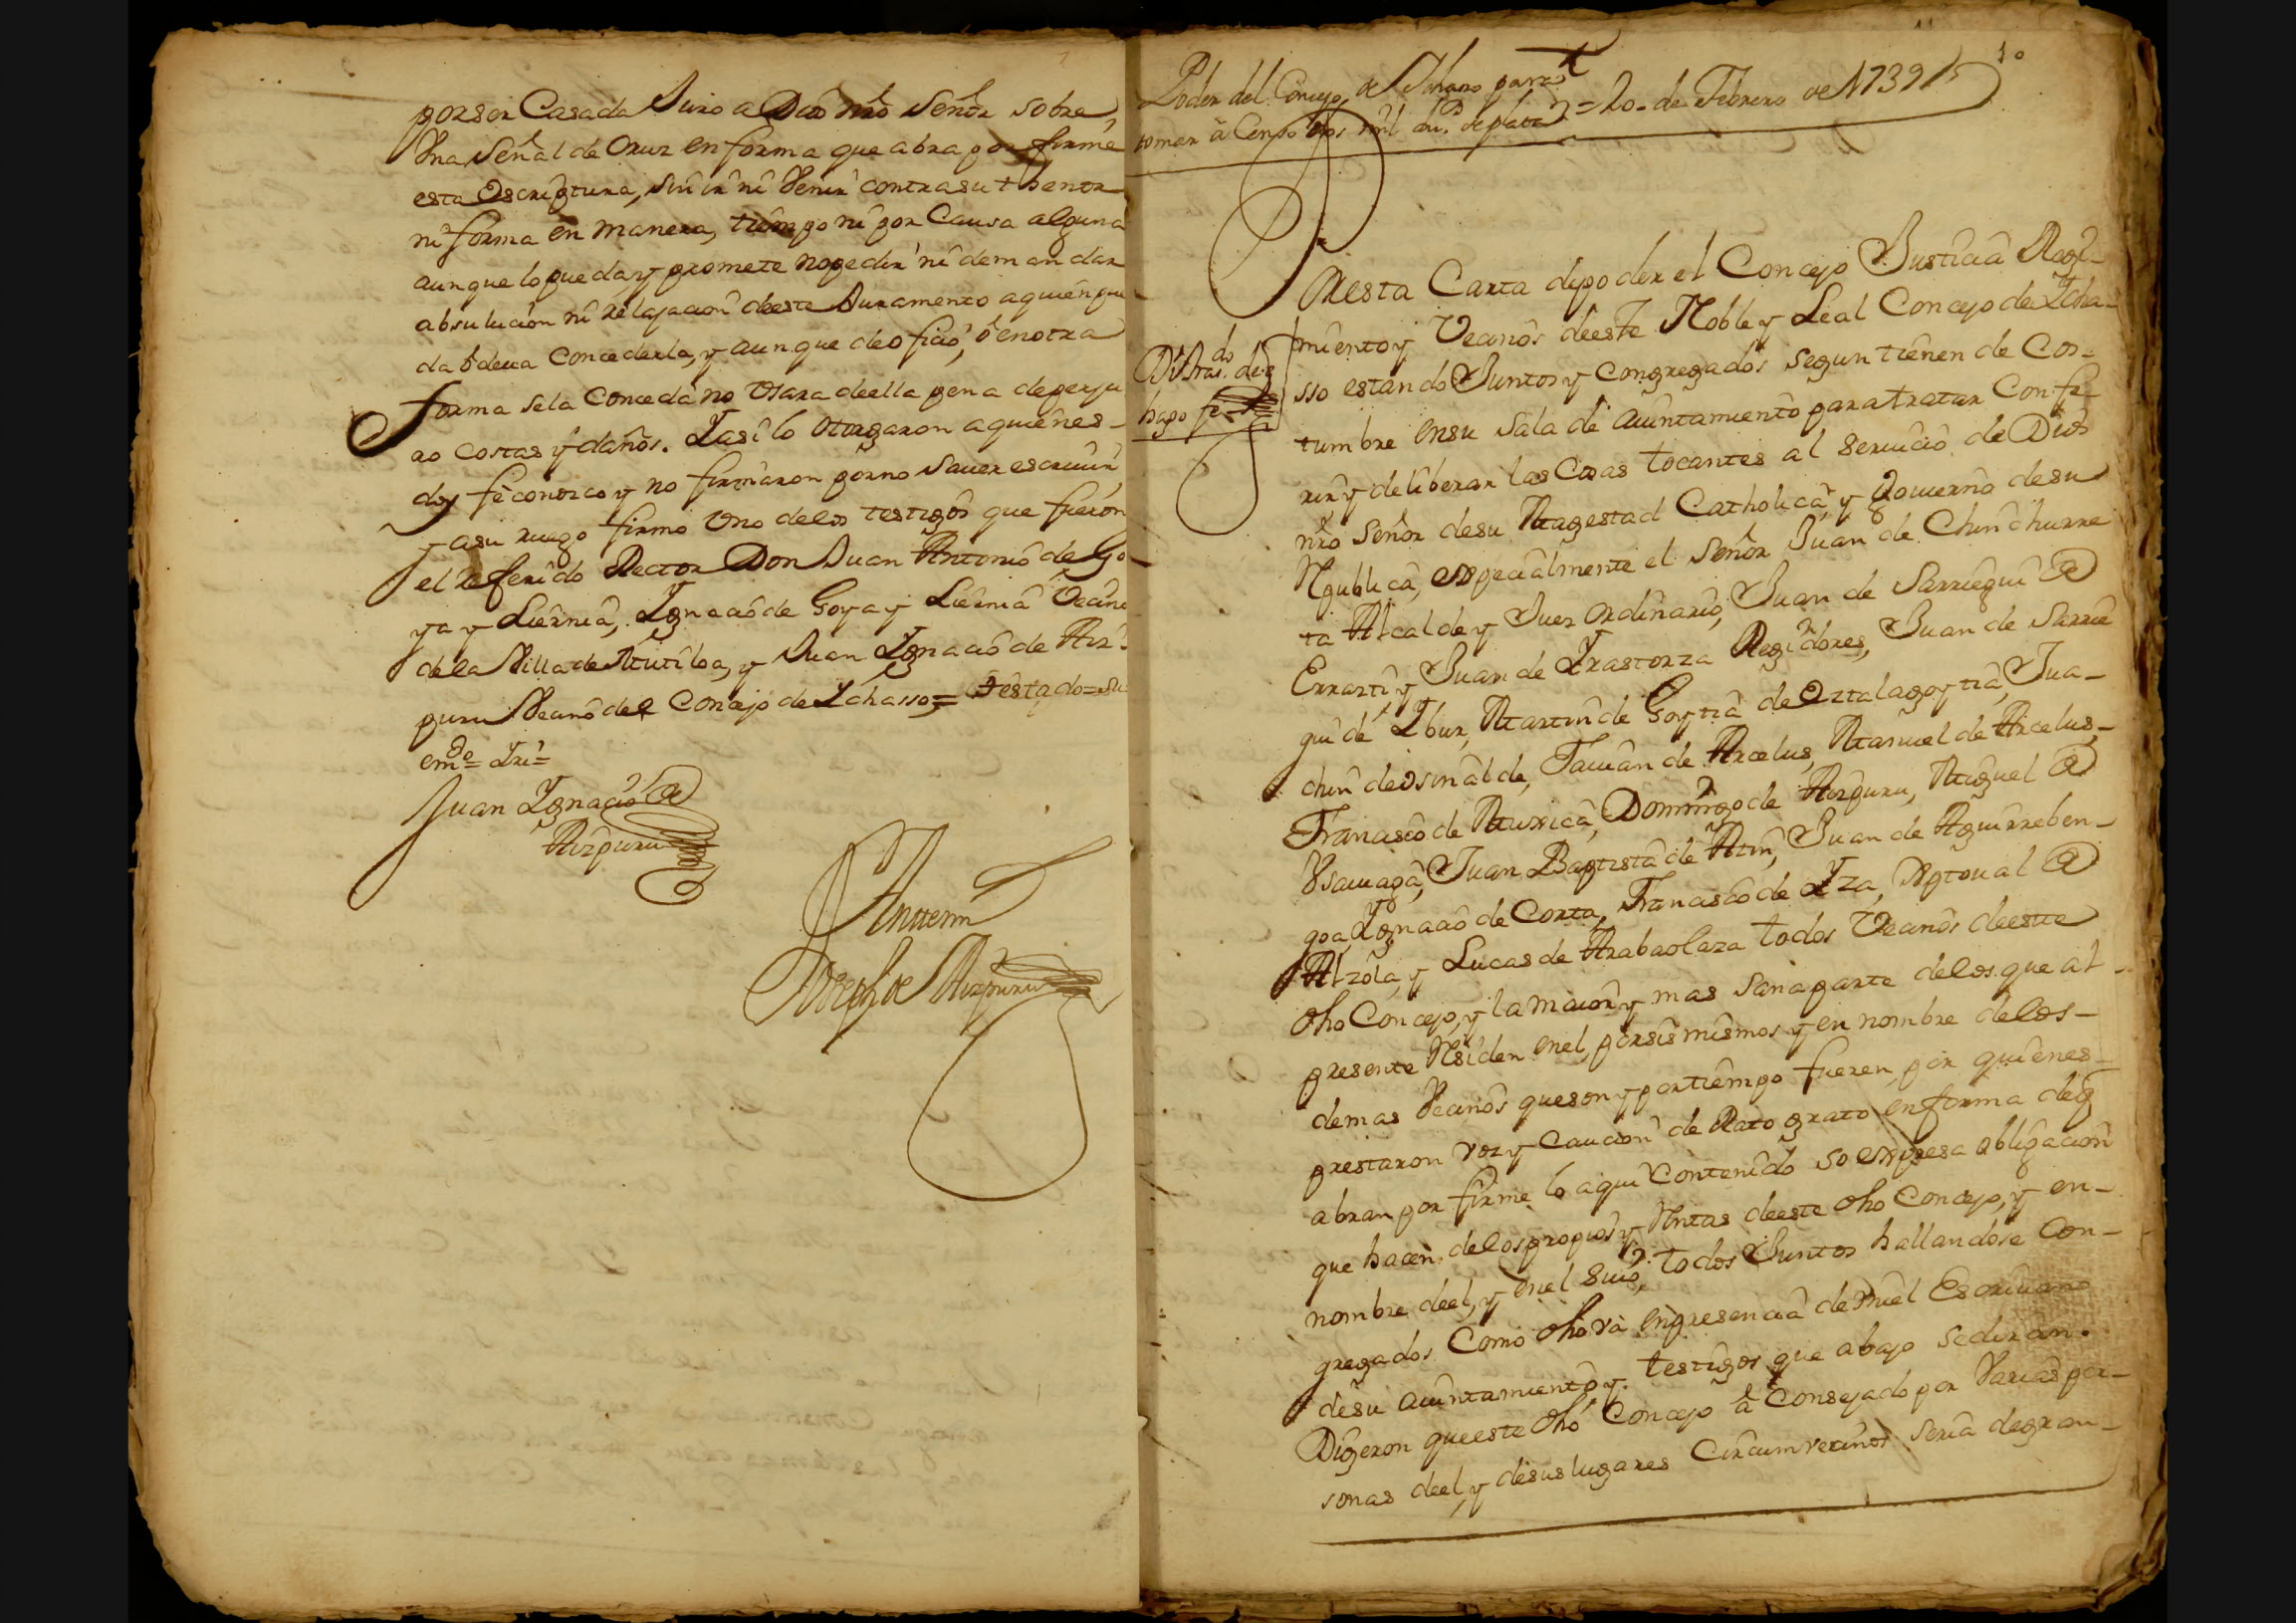 por ser Casada Juro a Dios nrõ Señor sobre
Vna Señal de Cruz en forma que abra por firme
esta Escriptura, sin ir ni Venir contra su thenor
ni forma en manera, tiempo ni por Causa alguna
aunque lo pueda y promete no pedir ni demandar
absulucion ni relajacion deeste Juramento a quien pue
da ò deua Concederla, y aunque de oficio, ò en otra
forma sela Conceda no Vsara deella pena de perju
ro costas y daños. Y asi lo otorgaron a quienes-
doy fè conozco y no firmaron por no Sauer escriuir
y a su ruego firmo Vno delos testigos que fueron
el referido Rector Don Juan Antonio de Go
ya y Liernia, Ygnacio de Goya y Liernia Vecino
de la Villa de Mutiloa, y Juan Ygnacio de Aiz-
puru Vecino del Concejo de Ychasso,= testado=su
emdo= Lri=
Juan Ygnacio de
Aizpuru
Anttemi
Joseph de Aizpuru
Poder del Concejo de Ychaso para
tomar à Censo dos mil dus. de plata = 20- de Febrero de 1739
10
En esta Carta de poder el Concejo Justicia Regi-
miento y Vecinos deeste Noble y Leal Concejo de Ycha-
sso estando Juntos y congregados segun tienen de Cos-
tumbre en su Sala de aiuntamiento para tratar Confe
rir y deliberar las Cosas tocantes al seruicio de Dios
nrõ Señor de su Magestad Catholica, y Gouierno de su
Republica, especialmente el señor Juan de Chinchurre
ta Alcalde y Juez ordinario, Juan de Sarriegui de
Errarti, y Juan de Yrastorza Regidores, Juan de Sarrie
gui de Ybur, Martin de Goytia de Oztalagoytia, Jua-
chin de Osinalde, Fauian de Arcelus, Manuel de Arcelus,-
Francisco de Muxica, Domingo de Aizpuru, Miguel de
Vsauiaga, Juan Baptista de Atin, Juan de Aguirreben-
goa, Ygnacio de Corta, Francisco de Yza, Xptoual de
Alzola, y Lucas de Arabaolaza todos Vecinos deeste
dho Concejo, y la maior y mas sana parte delos que al-
presente Residen en el, por sis mismos y en nombre delos-
demas Vecinos que son y por tiempo fueren, por quienes-
prestaron voz y Caucion de Rato grato en forma de q
abran por firme lo aqui Contenido so expresa obligacion
que hacen delos propios y Rentas deeste dho Concejo, y en-
nombre deel, y en el suio, todos Juntos hallandose Con-
gregados Como dho va en presencia de mi el Escriuano
de su aiuntamiento y testigos que abajo se diran.
Dixeron que este dho Concejo à Consejado por Varias per-
sonas deel, y de sus lugares Circumvecinos seria de gran-
do
hago fe